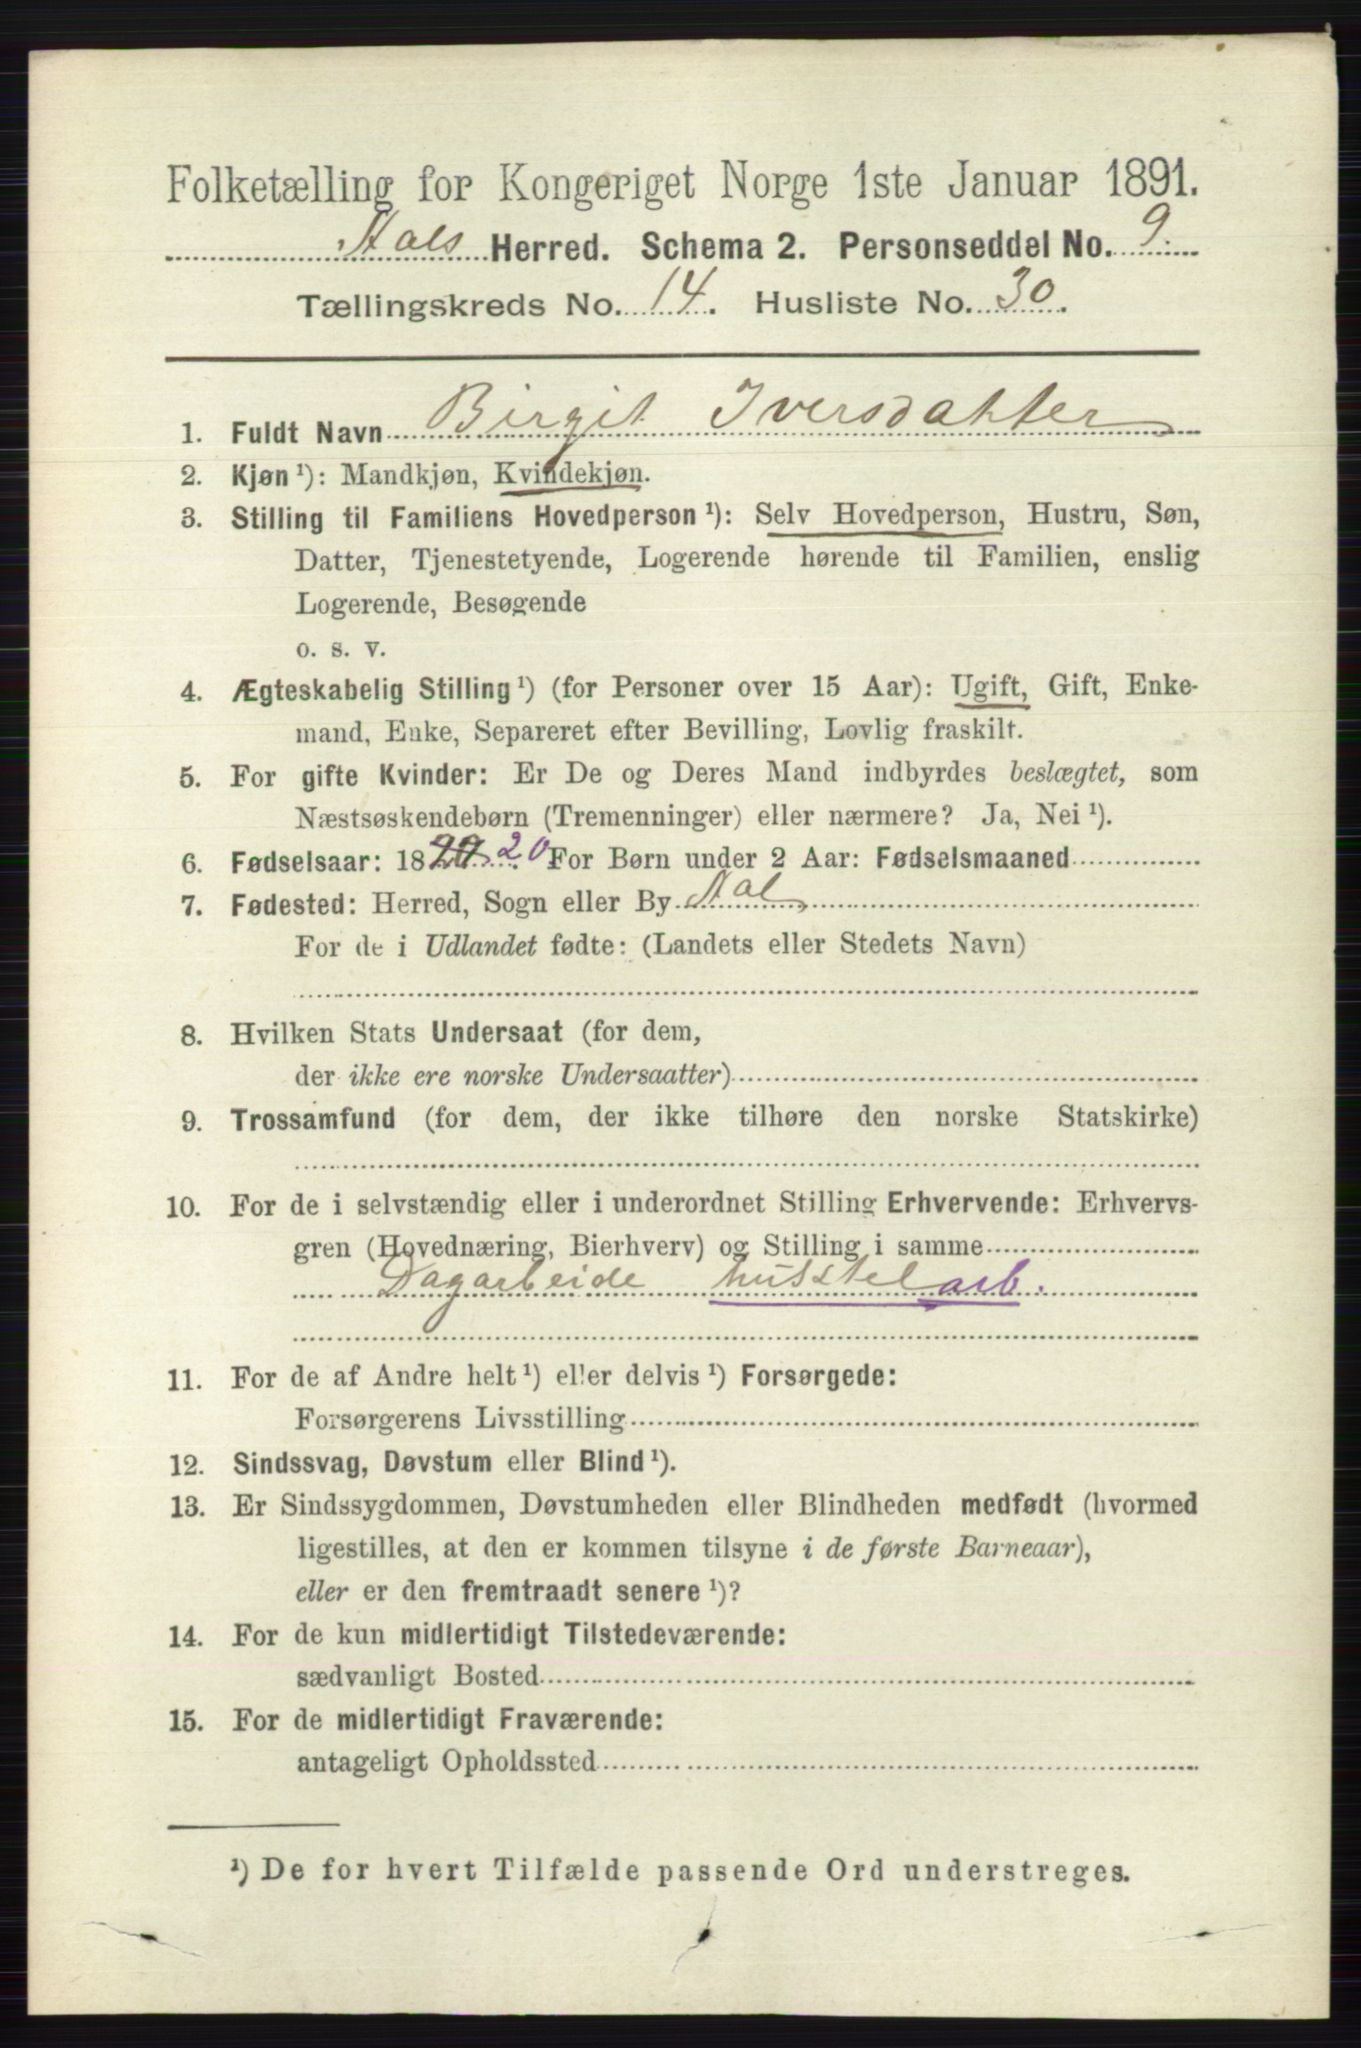 Folketælling for Kongeriget Norge 1ste Januar 1891.
Aals Herred. Schema 2. Personseddel No. 9.
Tællingskreds No. 14. Husliste No. 30.
1. Fuldt Navn Birgit Iversdatter
2. Kjøn ¹): Mandkjøn, Kvindekjøn.
3. Stilling til Familiens Hovedperson ¹): Selv Hovedperson, Hustru, Søn,
Datter, Tjenestetyende, Logerende hørende til Familien, enslig
Logerende, Besøgende
o. s. v.
4. Ægteskabelig Stilling ¹) (for Personer over 15 Aar): Ugift, Gift, Enke-
mand, Enke, Separeret efter Bevilling, Lovlig fraskilt.
5. For gifte Kvinder: Er De og Deres Mand indbyrdes beslægtet, som
Næstsøskendebørn (Tremenninger) eller nærmere? Ja, Nei ¹).
6. Fødselsaar: 18 20 For Børn under 2 Aar: Fødselsmaaned
7. Fødested: Herred, Sogn eller By Aal
For de i Udlandet fødte: (Landets eller Stedets Navn)
8. Hvilken Stats Undersaat (for dem,
der ikke ere norske Undersaatter)
9. Trossamfund (for dem, der ikke tilhøre den norske Statskirke)
10. For de i selvstændig eller i underordnet Stilling Erhvervende: Erhvervs-
gren (Hovednæring, Bierhverv) og Stilling i samme
Dagarbeide husstel arb.
11. For de af Andre helt ¹) eller delvis ¹) Forsørgede:
Forsørgerens Livsstilling
12. Sindssvag, Døvstum eller Blind ¹).
13. Er Sindssygdommen, Døvstumheden eller Blindheden medfødt (hvormed
ligestilles, at den er kommen tilsyne i de første Barneaar),
eller er den fremtraadt senere ¹)?
14. For de kun midlertidigt Tilstedeværende:
sædvanligt Bosted
15. For de midlertidigt Fraværende:
antageligt Opholdssted
¹) De for hvert Tilfælde passende Ord understreges.